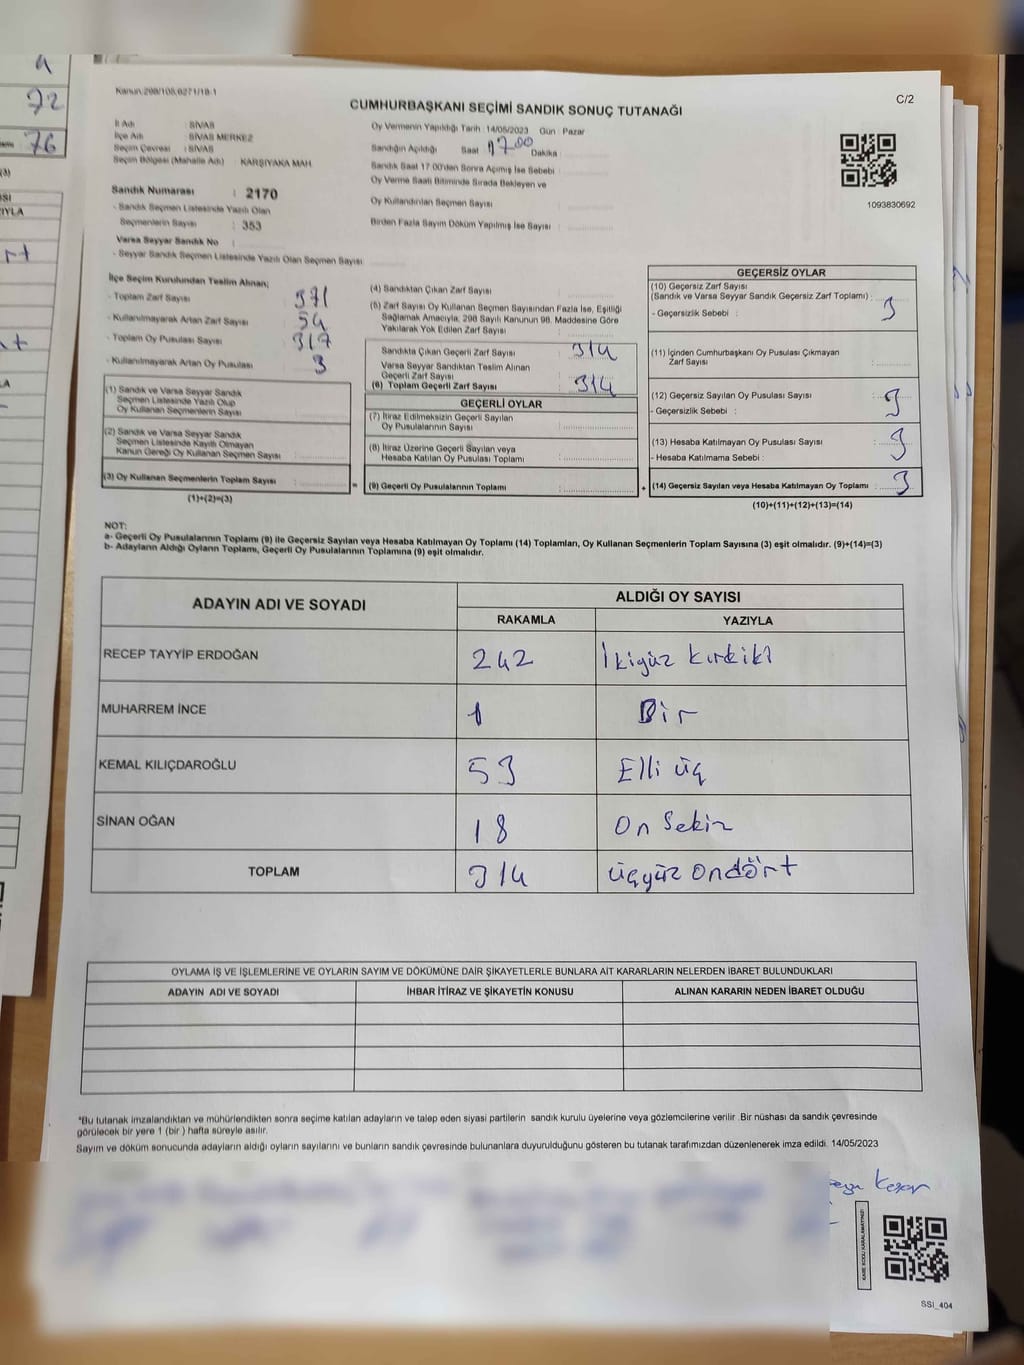 Kanun:298/105,6271/18-1
C/2
CUMHURBAŞKANI SEÇİMİ SANDIK SONUÇ TUTANAĞI
İl Adı : SİVAS
İlçe Adı : SİVAS MERKEZ
Seçim Çevresi : SİVAS
Seçim Bölgesi (Mahalle Adı) : KARŞIYAKA MAH
Sandık Numarası : 2170
- Sandık Seçmen Listesinde Yazılı Olan
Seçmenlerin Sayısı : 353
Varsa Seyyar Sandık No :
- Seyyar Sandık Seçmen Listesinde Yazılı Olan Seçmen Sayısı
Oy Vermenin Yapıldığı Tarih :14/05/2023 Gün : Pazar
Sandığın Açıldığı Saat 17:00 Dakika
Sandık Saat 17:00'den Sonra Açılmış İse Sebebi
Oy Verme Saati Bitiminde Sırada Bekleyen ve
Oy Kullandırılan Seçmen Sayısı
Birden Fazla Sayım Döküm Yapılmış İse Sayısı
1093830692
İlçe Seçim Kurulundan Teslim Alınan;
- Toplam Zarf Sayısı 371
- Kullanılmayarak Artan Zarf Sayısı 54
- Toplam Oy Pusulası Sayısı 317
- Kullanılmayarak Artan Oy Pusulası 3
(1) Sandık ve Varsa Seyyar Sandık
Seçmen Listesinde Yazılı Olup
Oy Kullanan Seçmenlerin Sayısı
(2) Sandık ve Varsa Seyyar Sandık
Seçmen Listesinde Kayıtlı Olmayan
Kanun Gereği Oy Kullanan Seçmen Sayısı
(3) Oy Kullanan Seçmenlerin Toplam Sayısı :
(1)+(2)=(3)
(4) Sandıktan Çıkan Zarf Sayısı
(5) Zarf Sayısı Oy Kullanan Seçmen Sayısından Fazla İse, Eşitliği
Sağlamak Amacıyla, 298 Sayılı Kanunun 98. Maddesine Göre
Yakılarak Yok Edilen Zarf Sayısı
Sandıkta Çıkan Geçerli Zarf Sayısı 314
Varsa Seyyar Sandıktan Teslim Alınan
Geçerli Zarf Sayısı
(6) Toplam Geçerli Zarf Sayısı 314
GEÇERLİ OYLAR
(7) İtiraz Edilmeksizin Geçerli Sayılan
Oy Pusulalarının Sayısı
(8) İtiraz Üzerine Geçerli Sayılan veya
Hesaba Katılan Oy Pusulası Toplamı
= (9) Geçerli Oy Pusulalarının Toplamı +
GEÇERSİZ OYLAR
(10) Geçersiz Zarf Sayısı
(Sandık ve Varsa Seyyar Sandık Geçersiz Zarf Toplamı) : 3
- Geçersizlik Sebebi :
(11) İçinden Cumhurbaşkanı Oy Pusulası Çıkmayan
Zarf Sayısı
(12) Geçersiz Sayılan Oy Pusulası Sayısı 3
- Geçersizlik Sebebi :
(13) Hesaba Katılmayan Oy Pusulası Sayısı 3
- Hesaba Katılmama Sebebi :
(14) Geçersiz Sayılan veya Hesaba Katılmayan Oy Toplamı 3
(10)+(11)+(12)+(13)=(14)
NOT:
a- Geçerli Oy Pusulalarının Toplamı (9) ile Geçersiz Sayılan veya Hesaba Katılmayan Oy Toplamı (14) Toplamları, Oy Kullanan Seçmenlerin Toplam Sayısına (3) eşit olmalıdır. (9)+(14)=(3)
b- Adayların Aldığı Oyların Toplamı, Geçerli Oy Pusulalarının Toplamına (9) eşit olmalıdır.
ADAYIN ADI VE SOYADI ALDIĞI OY SAYISI
RAKAMLA YAZIYLA
RECEP TAYYİP ERDOĞAN 242 İkiyüz kırkiki
MUHARREM İNCE 1 Bir
KEMAL KILIÇDAROĞLU 53 Elli üç
SİNAN OĞAN 18 On Sekiz
TOPLAM 314 üçyüz ondört
OYLAMA İŞ VE İŞLEMLERİNE VE OYLARIN SAYIM VE DÖKÜMÜNE DAİR ŞİKAYETLERLE BUNLARA AİT KARARLARIN NELERDEN İBARET BULUNDUKLARI
ADAYIN ADI VE SOYADI İHBAR İTİRAZ VE ŞİKAYETİN KONUSU ALINAN KARARIN NEDEN İBARET OLDUĞU
*Bu tutanak imzalandıktan ve mühürlendikten sonra seçime katılan adayların ve talep eden siyasi partilerin sandık kurulu üyelerine veya gözlemcilerine verilir .Bir nüshası da sandık çevresinde
görülecek bir yere 1 (bir ) hafta süreyle asılır.
Sayım ve döküm sonucunda adayların aldığı oyların sayılarını ve bunların sandık çevresinde bulunanlara duyurulduğunu gösteren bu tutanak tarafımızdan düzenlenerek imza edildi. 14/05/2023
KARE KODU KARALAMAYINIZ!
SSİ_404
72
76